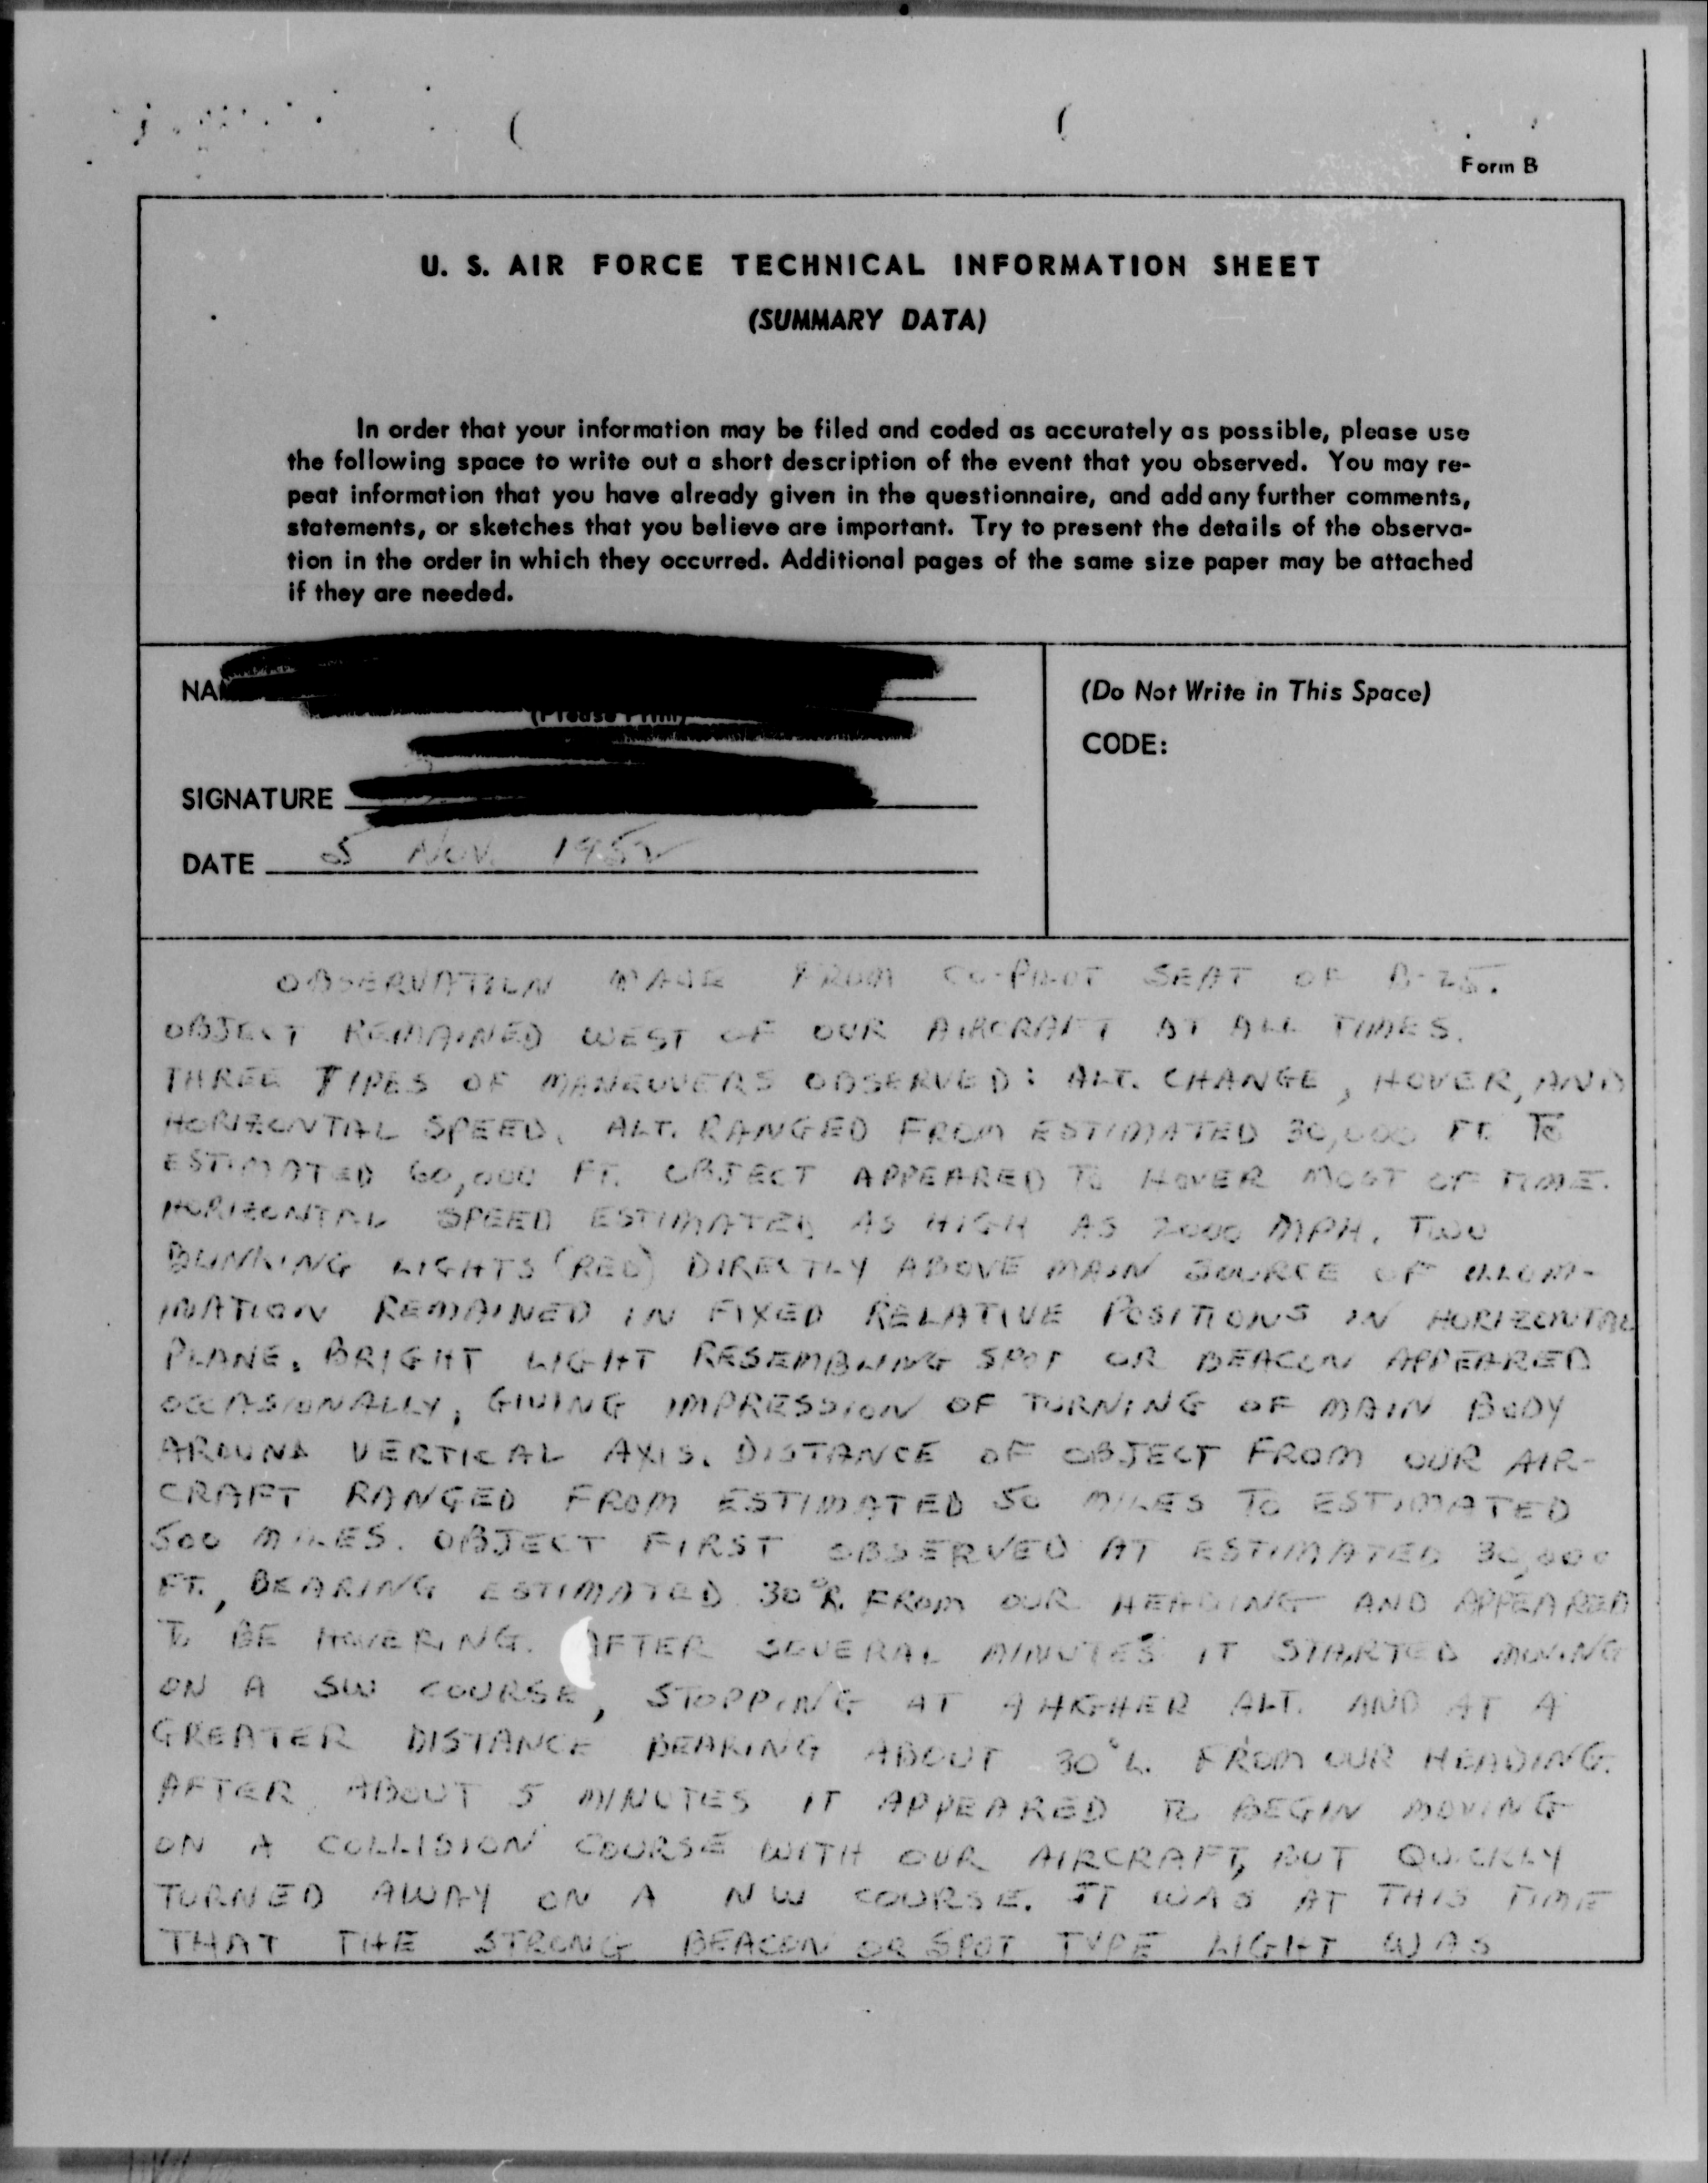 Form B
U. S. AIR FORCE TECHNICAL INFORMATION SHEET
(SUMMARY DATA)
In order that your information may be filed and coded as accurately as possible, please use
the following space to write out a short description of the event that you observed. You may re-
peat information that you have already given in the questionnaire, and add any further comments,
statements, or sketches that you believe are important. Try to present the details of the observa-
tion in the order in which they occurred. Additional pages of the same size paper may be attached
if they are needed.
(Please Print)
(Do Not Write in This Space)
CODE:
SIGNATURE
DATE 5 Nov. 1952
OBSERVATION MADE FROM CO-PILOT SEAT OF B-25.
OBJECT REMAINED WEST OF OUR AIRCRAFT AT ALL TIMES.
THREE TYPES OF MANEUVERS OBSERVED: ALT. CHANGE, HOVER, AND
HORIZONTAL SPEED. ALT. RANGED FROM ESTIMATED 30,000 FT. TO
ESTIMATED 60,000 FT. OBJECT APPEARED TO HOVER MOST OF TIME.
HORIZONTAL SPEED ESTIMATED AS HIGH AS 2000 MPH. TWO
BLINKING LIGHTS (RED) DIRECTLY ABOVE MAIN SOURCE OF ILLUM-
INATION REMAINED IN FIXED RELATIVE POSITIONS IN HORIZONTAL
PLANE. BRIGHT LIGHT RESEMBLING SPOT OR BEACON APPEARED
OCCASIONALLY, GIVING IMPRESSION OF TURNING OF MAIN BODY
AROUND VERTICAL AXIS. DISTANCE OF OBJECT FROM OUR AIR-
CRAFT RANGED FROM ESTIMATED 50 MILES TO ESTIMATED
500 MILES. OBJECT FIRST OBSERVED AT ESTIMATED 30,000
FT., BEARING ESTIMATED 30° R. FROM OUR HEADING AND APPEARED
TO BE HOVERING. AFTER SEVERAL MINUTES IT STARTED MOVING
ON A SW COURSE, STOPPING AT A HIGHER ALT. AND AT A
GREATER DISTANCE BEARING ABOUT 30° L. FROM OUR HEADING.
AFTER ABOUT 5 MINUTES IT APPEARED TO BEGIN MOVING
ON A COLLISION COURSE WITH OUR AIRCRAFT, BUT QUICKLY
TURNED AWAY ON A NW COURSE. IT WAS AT THIS TIME
THAT THE STRONG BEACON OR SPOT TYPE LIGHT WAS